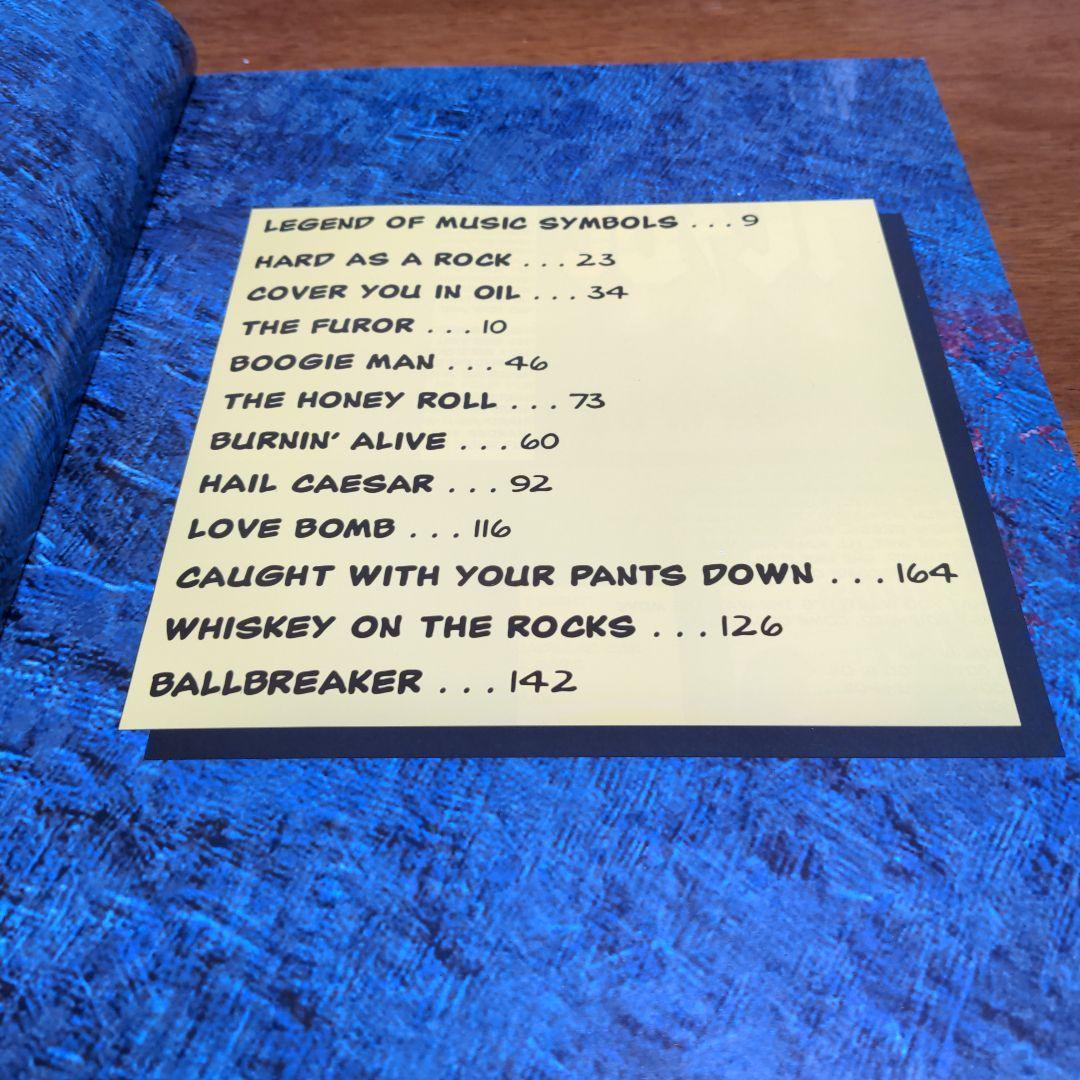 LEGEND OF MUSIC SYMBOLS . . . 9
HARD AS A ROCK . . . 23
COVER YOU IN OIL . . . 34
THE FUROR . . . 10
BOOGIE MAN . . . 46
THE HONEY ROLL . . . 73
BURNIN' ALIVE . . . 60
HAIL CAESAR . . . 92
LOVE BOMB . . . 116
CAUGHT WITH YOUR PANTS DOWN . . . 164
WHISKEY ON THE ROCKS . . . 126
BALLBREAKER . . . 142